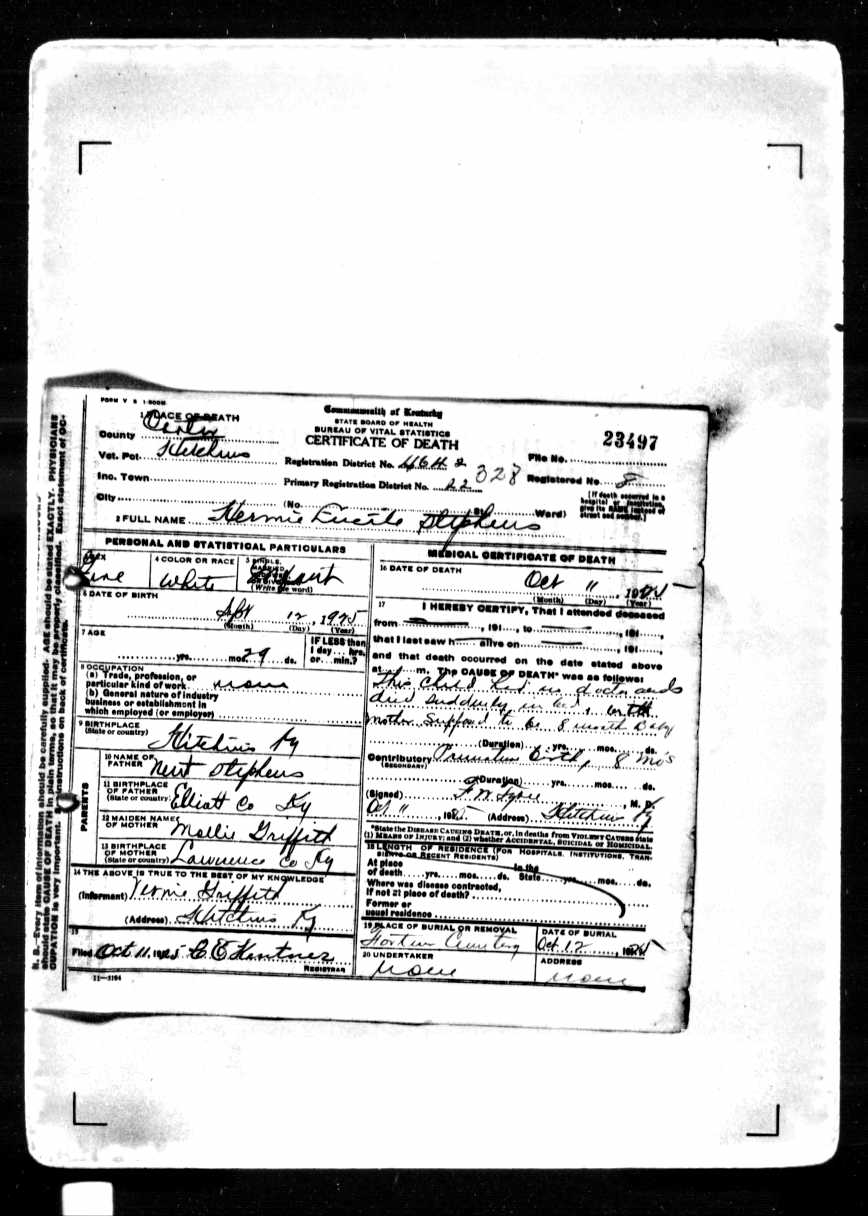 FORM V S 1-500M
Commonwealth of Kentucky
STATE BOARD OF HEALTH
BUREAU OF VITAL STATISTICS
CERTIFICATE OF DEATH
23497
1 PLACE OF DEATH
County Carter
Vot. Pct. Hitchins
Inc. Town
City
Registration District No.
File No.
Primary Registration District No. 22 328
Registered No. 8
(No. St. Ward)
[If death occurred in a hospital or institution, give its NAME instead of street and number.]
2 FULL NAME Lucile Stephens
PERSONAL AND STATISTICAL PARTICULARS
3 SEX
4 COLOR OR RACE White
5 SINGLE, MARRIED
(Write the word)
6 DATE OF BIRTH
Sept 12, 1925
(Month) (Day) (Year)
7 AGE
yrs. mos. 29 ds.
IF LESS than 1 day hrs. or min.?
8 OCCUPATION
(a) Trade, profession, or particular kind of work none
(b) General nature of industry business or establishment in which employed (or employer)
9 BIRTHPLACE
(State or country) Hitchins Ky
PARENTS
10 NAME OF FATHER Newt Stephens
11 BIRTHPLACE OF FATHER (State or country) Elliott Co Ky
12 MAIDEN NAME OF MOTHER Mollie Griffith
13 BIRTHPLACE OF MOTHER (State or country) Lawrence Co Ky
14 THE ABOVE IS TRUE TO THE BEST OF MY KNOWLEDGE
(Informant) Griffith
(Address) Hitchins Ky
15
Filed Oct 11, 1925
REGISTRAR
11-3184
MEDICAL CERTIFICATE OF DEATH
16 DATE OF DEATH
Oct 11, 1925
(Month) (Day) (Year)
17 I HEREBY CERTIFY, That I attended deceased
from , 191 , to , 191 ,
that I last saw h alive on , 191 ,
and that death occurred on the date stated above
at m. The CAUSE OF DEATH* was as follows:
This Child had no doctor and
died suddenly in bed, with
mother Supposed to be 8 month Baby
(Duration) yrs. mos. ds.
Contributory Premature birth, 8 mo's
(SECONDARY)
(Duration) yrs. mos. ds.
(Signed) , M. D.
Oct 11, 1925 (Address) Hitchins Ky
*State the DISEASE CAUSING DEATH, or, in deaths from VIOLENT CAUSES state (1) MEANS OF INJURY; and (2) whether ACCIDENTAL, SUICIDAL or HOMICIDAL.
18 LENGTH OF RESIDENCE (FOR HOSPITALS, INSTITUTIONS, TRANSIENTS OR RECENT RESIDENTS)
At place of death yrs. mos. ds. In the State yrs. mos. ds.
Where was disease contracted, if not at place of death?
Former or usual residence
19 PLACE OF BURIAL OR REMOVAL
Cemetery
DATE OF BURIAL
Oct 12
20 UNDERTAKER
none
ADDRESS
none
N. B.—Every item of information should be carefully supplied. AGE should be stated EXACTLY. PHYSICIANS
should state CAUSE OF DEATH in plain terms, so that it may be properly classified. Exact statement of OCCUPATION is very important. See instructions on back of certificate.